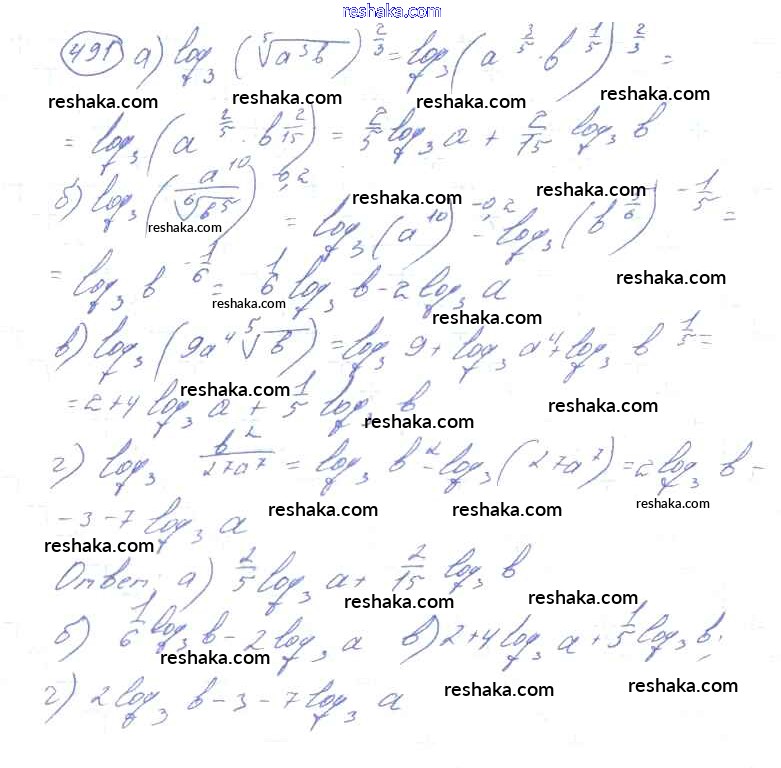 reshaka.com
491 а) log₃ (⁵√(a³b))^(2/3) = log₃ (a^(3/5) · b^(1/5))^(2/3) =
reshaka.com reshaka.com reshaka.com reshaka.com
= log₃ (a^(2/5) · b^(2/15)) = 2/5 log₃ a + 2/15 log₃ b
б) log₃ (a^10 / ⁶√(b⁵))^(-0,2) = log₃ (a^10)^(-0,2) - log₃ (b^(5/6))^(-1/5) =
reshaka.com reshaka.com reshaka.com
= log₃ b^(-1/6) = 1/6 log₃ b - 2 log₃ a
reshaka.com reshaka.com reshaka.com
в) log₃ (9a⁴ ⁵√b) = log₃ 9 + log₃ a⁴ + log₃ b^(1/5) =
= 2 + 4 log₃ a + 1/5 log₃ b
reshaka.com reshaka.com reshaka.com
г) log₃ b²/27a⁷ = log₃ b² - log₃ (27a⁷) = 2 log₃ b -
- 3 - 7 log₃ a
reshaka.com reshaka.com reshaka.com reshaka.com
Ответ: а) 2/5 log₃ a + 2/15 log₃ b
reshaka.com reshaka.com
б) 1/6 log₃ b - 2 log₃ a в) 2 + 4 log₃ a + 1/5 log₃ b;
reshaka.com
г) 2 log₃ b - 3 - 7 log₃ a
reshaka.com reshaka.com